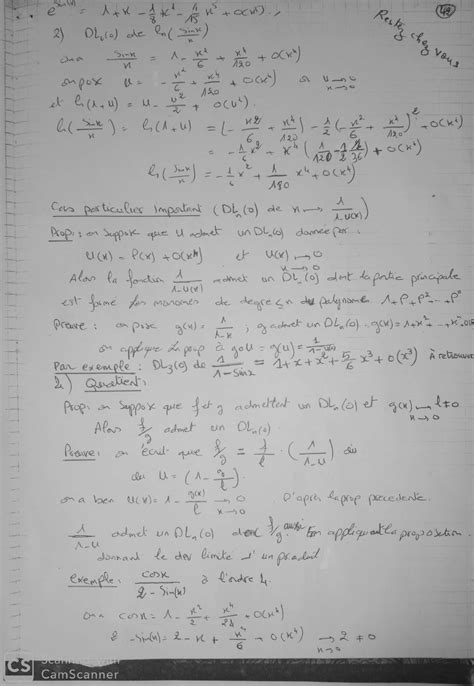 e^{sin(x)} = 1 + x - \frac{1}{8}x^4 - \frac{1}{15}x^5 + o(x^5).
Restez chez vous
2) DL_4(0) de ln(\frac{sin x}{x})
on a \frac{sin x}{x} = 1 - \frac{x^2}{6} + \frac{x^4}{120} + o(x^4)
on pose u = -\frac{x^2}{6} + \frac{x^4}{120} + o(x^4) or u → 0
x → 0
et ln(1+u) = u - \frac{u^2}{2} + o(u^2).
ln(\frac{sin x}{x}) = ln(1+u) = (-\frac{x^2}{6} + \frac{x^4}{120}) - \frac{1}{2}(-\frac{x^2}{6} + \frac{x^4}{120})^2 + o(x^4)
= -\frac{1}{6}x^2 + x^4(\frac{1}{120} - \frac{1}{2}\frac{1}{36}) + o(x^4)
ln(\frac{sin x}{x}) = -\frac{1}{6}x^2 + \frac{1}{180}x^4 + o(x^4)
Cas particulier Important (DL_n(0) de x → \frac{1}{1-u(x)})
Prop: on suppose que u admet un DL_n(0) donnée par:
u(x) = P(x) + o(x^n) et u(x) → 0
x → 0
Alors la fonction \frac{1}{1-u(x)} admet un DL_n(0) dont la partie principale
est formé des monomes de degres ≤ n du polynome 1+P+P^2 - - P^n
Preuve: on pose g(x) = \frac{1}{1-x}; g admet un DL_n(0). g(x) = 1+x+ - - x^n
on applique la prop à gou = g(u) = \frac{1}{1-u(x)}
Par exemple: DL_3(0) de \frac{1}{1-sin x} = 1+x+x^2+\frac{5}{6}x^3+o(x^3) À retrouver
2) Quotient:
Prop: on suppose que f et g admettent un DL_n(0) et g(x) → l ≠ 0
x → 0
Alors \frac{f}{g} admet un DL_n(0)
Preuve: on écrit que \frac{f}{g} = \frac{f}{l} . (\frac{1}{1-u})
ou u = (1 - \frac{g}{l})
on a bien u(x) = 1 - \frac{g(x)}{l} → 0 D'après la prop precedente
x → 0
\frac{1}{1-u} admet un DL_n(0) donc f/g aussi En appliquant la proposition
donnant le dev limite d'un produit
Exemple: \frac{cos x}{2 - sin(x)} à l'ordre 4.
on a cos x = 1 - \frac{x^2}{2} + \frac{x^4}{24} + o(x^4)
2 - sin(x) = 2 - x + \frac{x^3}{6} + o(x^4) → 2 ≠ 0
x → 0
CS
CamScanner